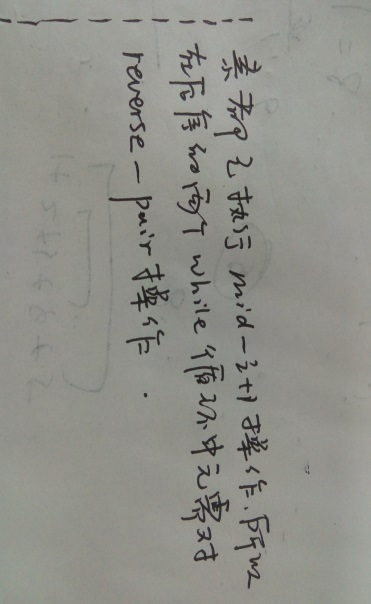 素都已执行 mid-i+1 操作,所以
在后续的两个 while 循环中无需对
reverse-pair 操作.